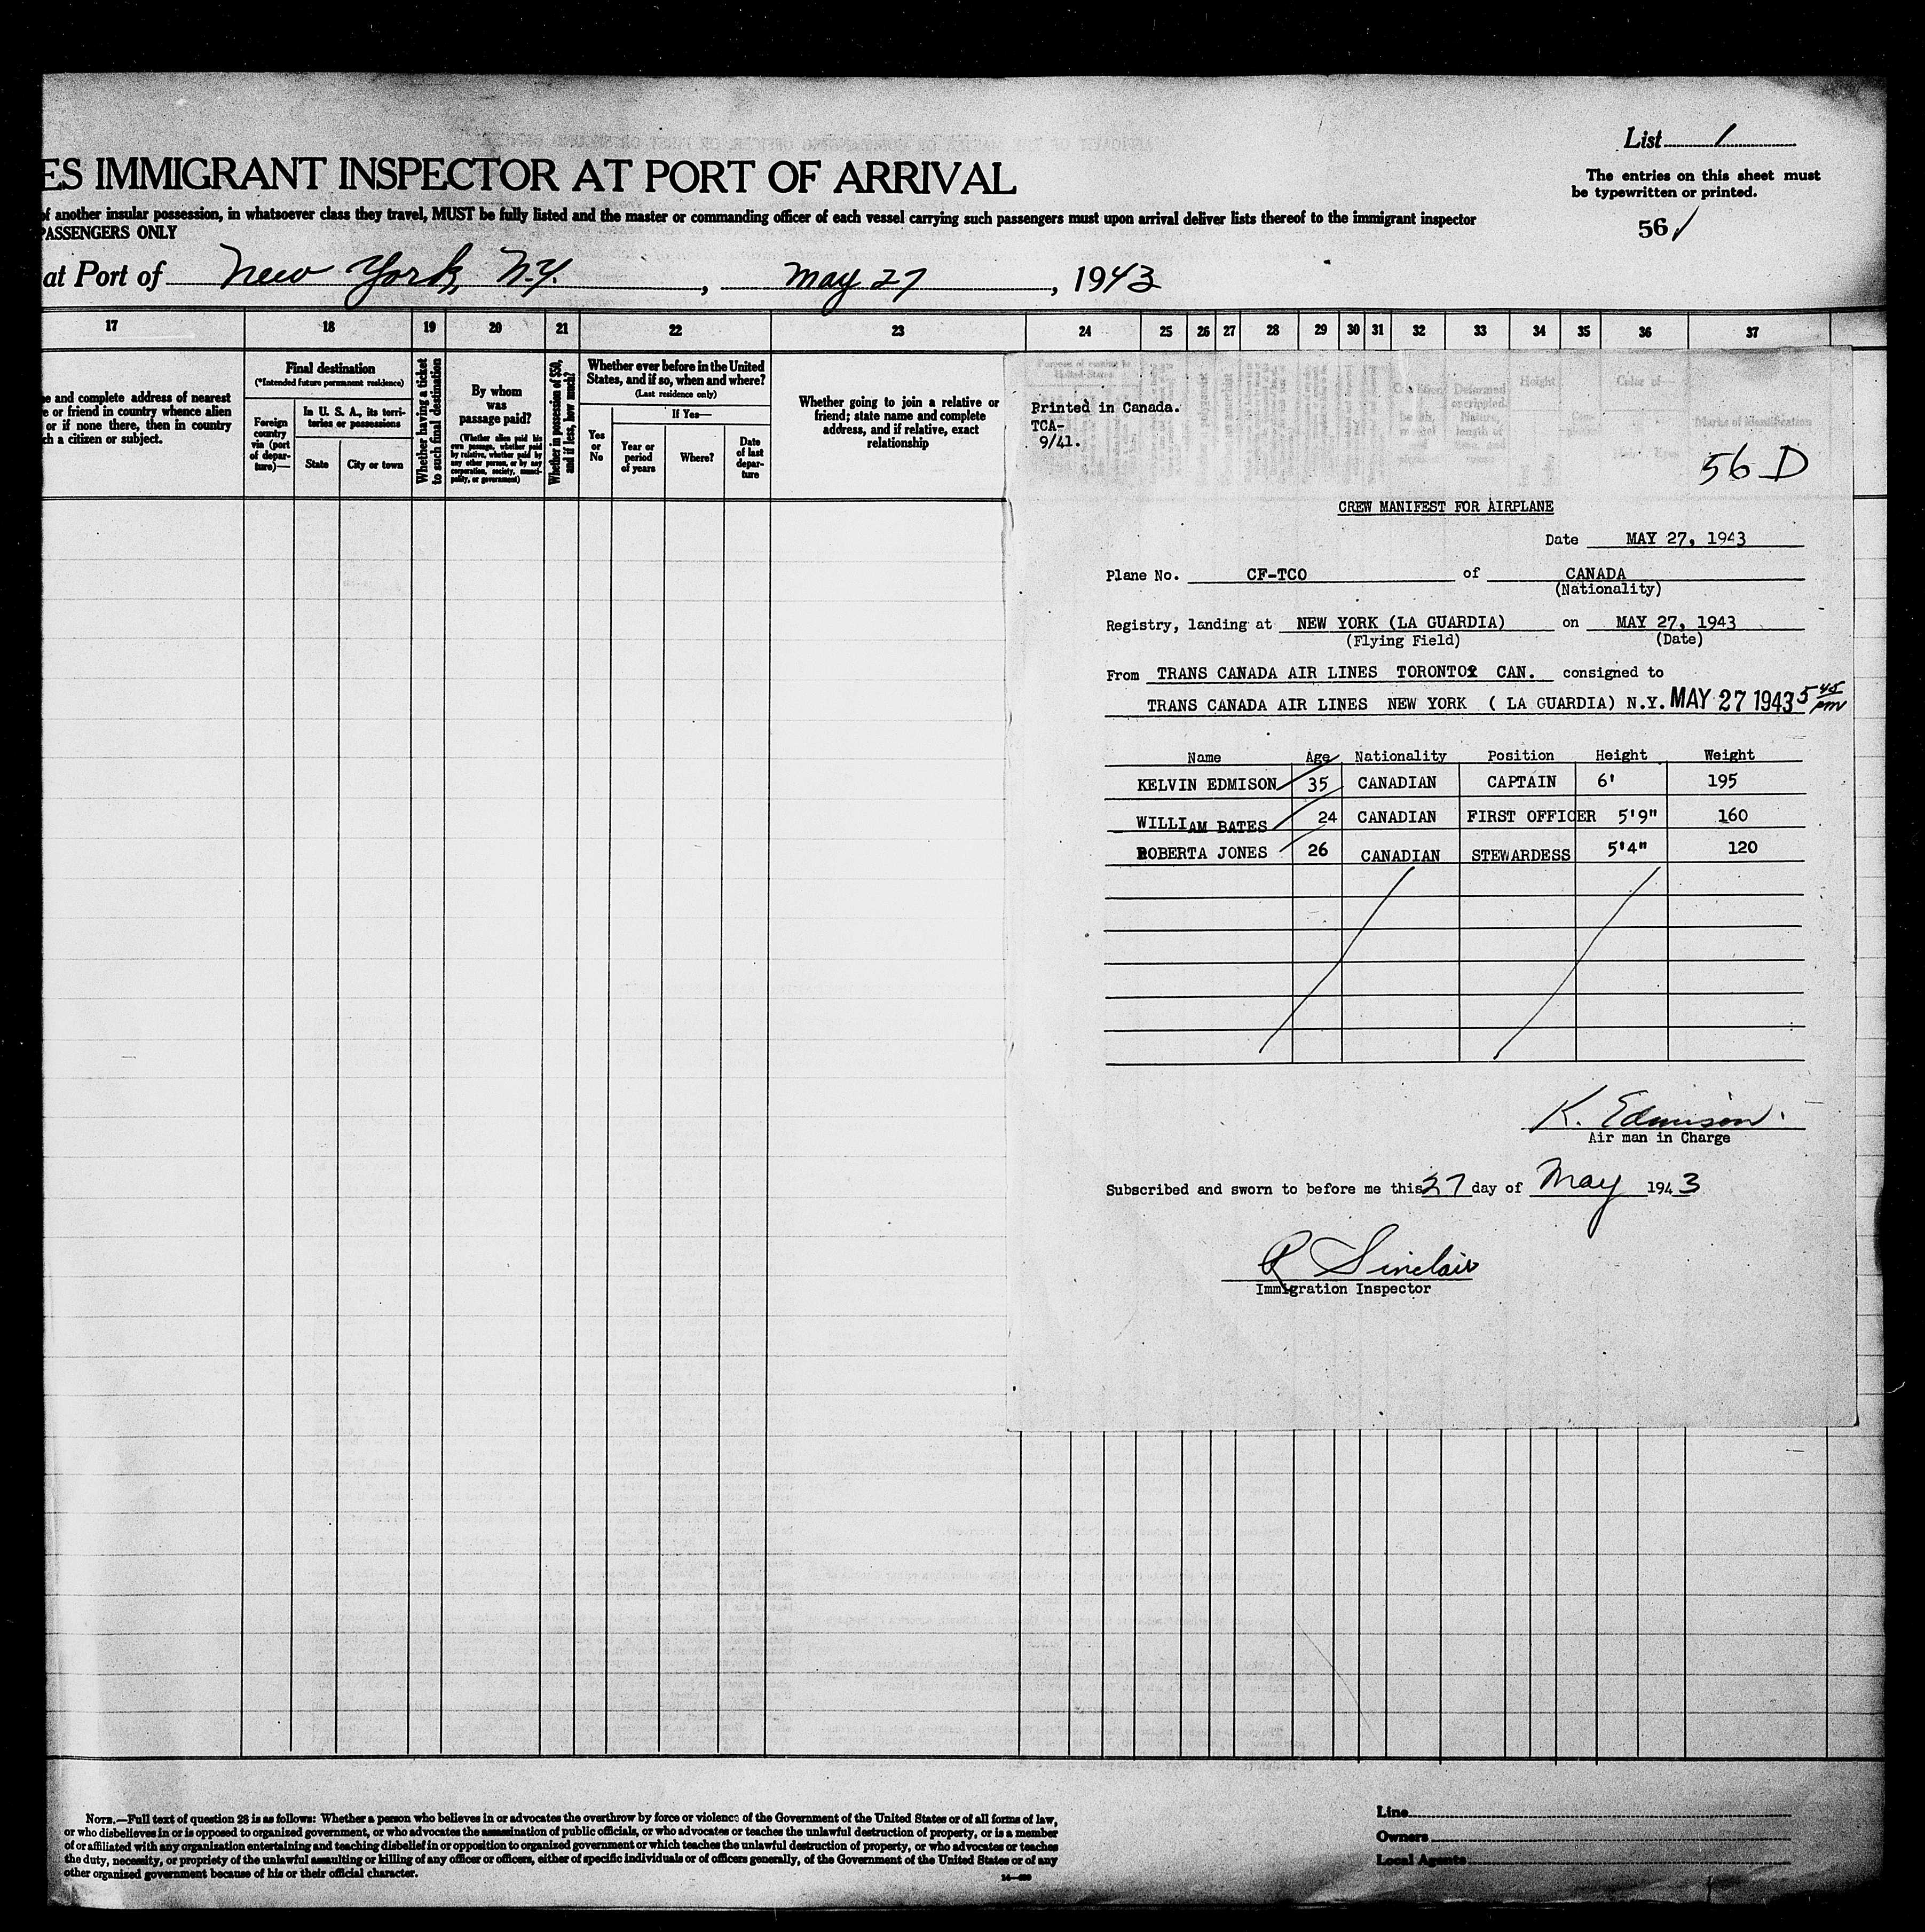 List 1
ES IMMIGRANT INSPECTOR AT PORT OF ARRIVAL
The entries on this sheet must
be typewritten or printed.
of another insular possession, in whatsoever class they travel, MUST be fully listed and the master or commanding officer of each vessel carrying such passengers must upon arrival deliver lists thereof to the immigrant inspector
PASSENGERS ONLY
56
at Port of New York, N.Y. , May 27 , 1943
17 18 19 20 21 22 23 24 25 26 27 28 29 30 31 32 33 34 35 36 37
e and complete address of nearest
e or friend in country whence alien
or if none there, then in country
ch a citizen or subject.
Final destination
(*Intended future permanent residence)
Foreign
country
via (port
of depar-
ture)—
In U. S. A., its terri-
tories or possessions
State
City or town
Whether having a ticket
to such final destination
By whom
was
passage paid?
(Whether alien paid his
own passage, whether paid
by relative, whether paid by
any other person, or by any
corporation, society, munici-
pality, or government)
Whether in possession of $50,
and if less, how much?
Whether ever before in the United
States, and if so, when and where?
(Last residence only)
Yes
or
No
If Yes—
Year or
period
of years
Where?
Date
of last
depar-
ture
Whether going to join a relative or
friend; state name and complete
address, and if relative, exact
relationship
Printed in Canada.
TCA-
9/41.
56 D
CREW MANIFEST FOR AIRPLANE
Date MAY 27, 1943
Plane No. CF-TCO of CANADA
(Nationality)
Registry, landing at NEW YORK (LA GUARDIA) on MAY 27, 1943
(Flying Field) (Date)
From TRANS CANADA AIR LINES TORONTO CAN. consigned to
TRANS CANADA AIR LINES NEW YORK ( LA GUARDIA) N.Y. MAY 27 1943 5 45 pm
Name Age Nationality Position Height Weight
KELVIN EDMISON 35 CANADIAN CAPTAIN 6' 195
WILLIAM BATES 24 CANADIAN FIRST OFFICER 5'9" 160
ROBERTA JONES 26 CANADIAN STEWARDESS 5'4" 120
K. Edmison.
Air man in Charge
Subscribed and sworn to before me this 27 day of May 1943
R Sinclair
Immigration Inspector
NOTE.—Full text of question 28 is as follows: Whether a person who believes in or advocates the overthrow by force or violence of the Government of the United States or of all forms of law,
or who disbelieves in or is opposed to organized government, or who advocates the assassination of public officials, or who advocates or teaches the unlawful destruction of property, or is a member
of or affiliated with any organization entertaining and teaching disbelief in or opposition to organized government or which teaches the unlawful destruction of property, or who advocates or teaches
the duty, necessity, or propriety of the unlawful assaulting or killing of any officer or officers, either of specific individuals or of officers generally, of the Government of the United States or of any
other organized government because of his or their official character.
Line
Owners
Local Agents